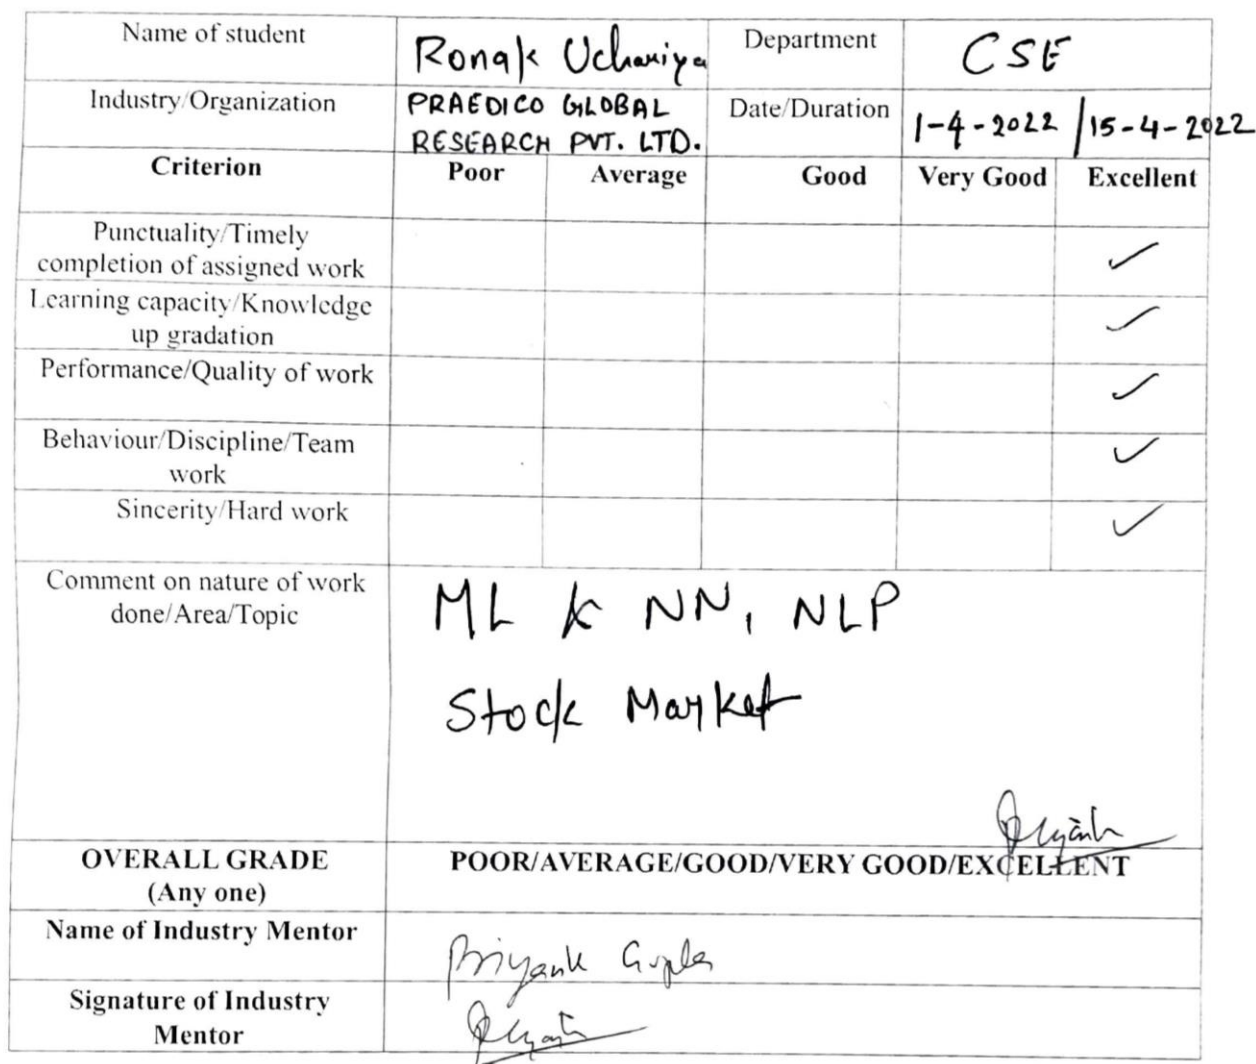 Name of student Ronak Uchariya Department CSE
Industry/Organization PRAEDICO GLOBAL Date/Duration 1-4-2022 / 15-4-2022
RESEARCH PVT. LTD.
Criterion Poor Average Good Very Good Excellent
Punctuality/Timely ✓
completion of assigned work
Learning capacity/Knowledge ✓
up gradation
Performance/Quality of work ✓
Behaviour/Discipline/Team ✓
work
Sincerity/Hard work ✓
Comment on nature of work ML & NN, NLP
done/Area/Topic
Stock Market
OVERALL GRADE POOR/AVERAGE/GOOD/VERY GOOD/EXCELLENT
(Any one)
Name of Industry Mentor Priyank Gupta
Signature of Industry
Mentor